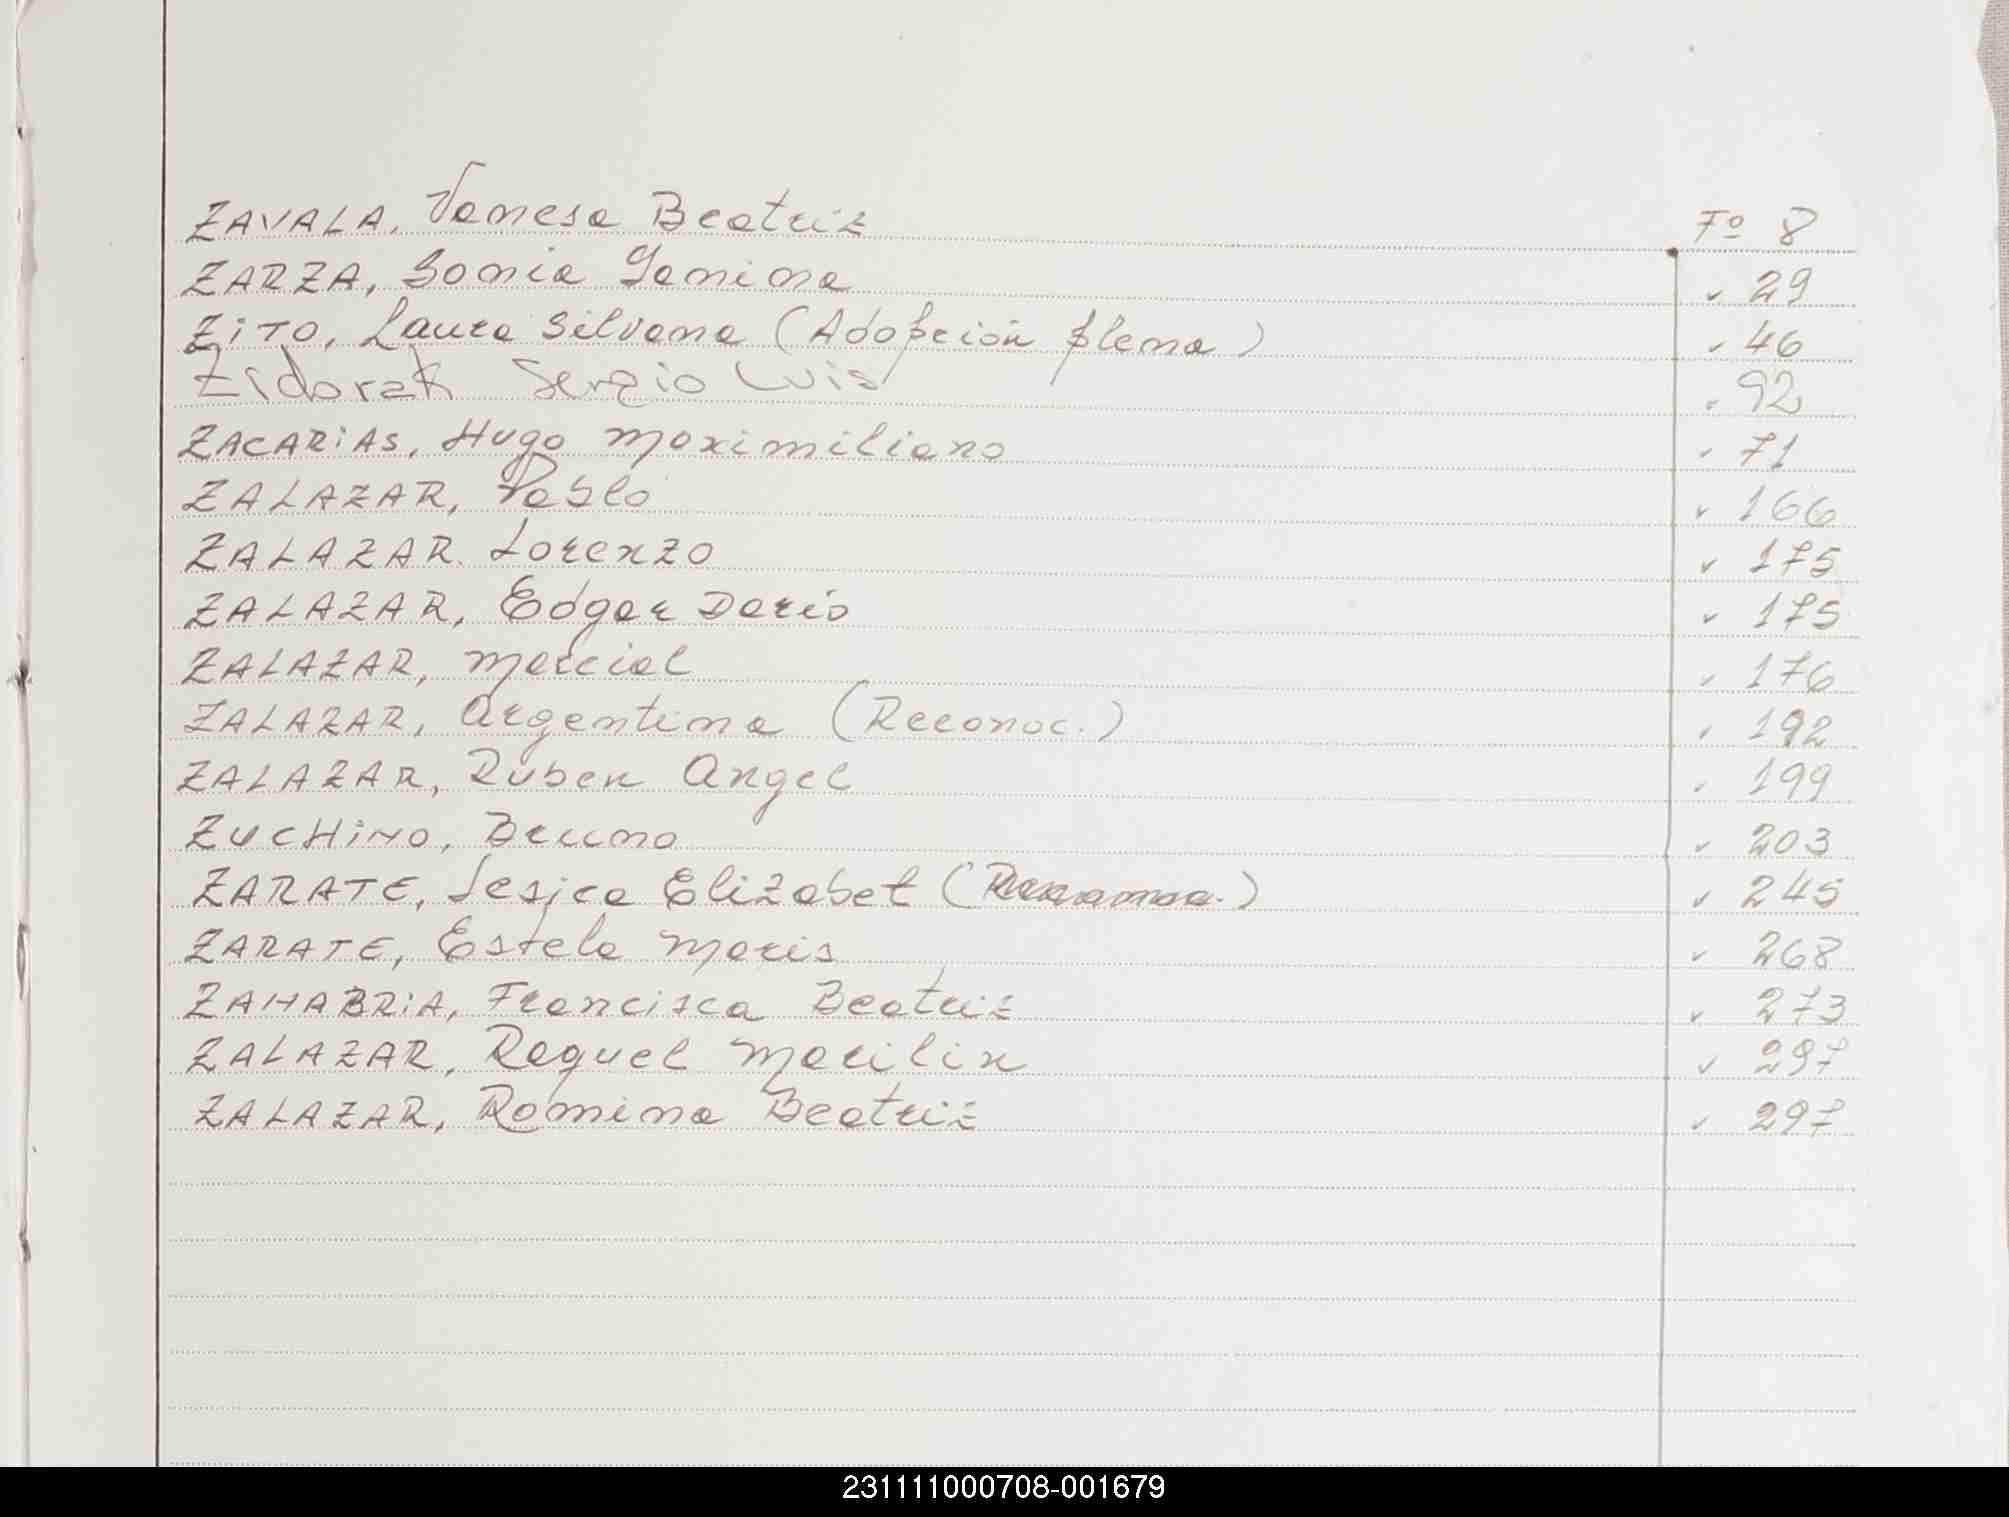 ZAVALA, Vanesa Beatriz Fº 8
ZARZA, Sonia Yanina " 29
ZiTO, Laura Silvana (Adopción plena) " 46
Zidorak Sergio Luis " 92
ZACARiAS, Hugo Maximiliano " 71
ZALAZAR, Pablo " 166
ZALAZAR. Lorenzo " 175
ZALAZAR, Edgar Dario " 175
ZALAZAR, Marcial " 176
ZALAZAR, Argentina (Reconoc.) " 192
ZALAZAR, Ruben Angel " 199
ZUCHiNO, Bruno " 203
ZARATE, Jesica Elizabet ( ) " 245
ZARATE, Estela Maris " 268
ZANABRiA, Francisca Beatriz " 273
ZALAZAR, Raquel Marilin " 297
ZALAZAR, Romina Beatriz " 297
231111000708-001679